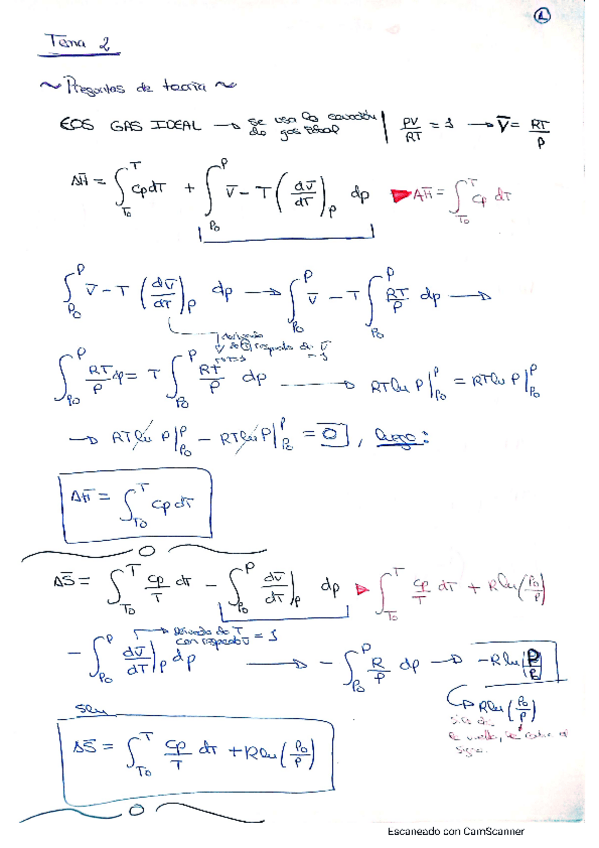 1
Tema 2
~ Preguntas de teoria ~
EOS GAS IDEAL → se usa la ecuación de gas ideal | PV/RT = 1 → V̄ = RT/P
ΔH̄ = ∫_{T0}^{T} Cp dT + ∫_{P0}^{P} V̄ − T (dV̄/dT)_P dp ▶ ΔH̄ = ∫_{T0}^{T} Cp dT
∫_{P0}^{P} V̄ − T (dV̄/dT)_P dp → ∫_{P0}^{P} V̄ − T ∫_{P0}^{P} RT/P dp →
∫_{P0}^{P} RT/P dp = T ∫_{P0}^{P} RT/P dp → RT ln P |_{P0}^{P} = RT ln P |_{P0}^{P}
→ RT ln P |_{P0}^{P} − RT ln P |_{P0}^{P} = 0 , luego:
ΔH̄ = ∫_{T0}^{T} Cp dT
ΔS̄ = ∫_{T0}^{T} Cp/T dT − ∫_{P0}^{P} dV̄/dT |_P dp ▶ ∫_{T0}^{T} Cp/T dT + R ln (P0/P)
Derivada de T con respecto V̄ = 1
− ∫_{P0}^{P} dV̄/dT |_P dp → − ∫_{P0}^{P} R/P dp → −R ln
R ln (P0/P)
ΔS̄ = ∫_{T0}^{T} Cp/T dT + R ln (P0/P)
Escaneado con CamScanner